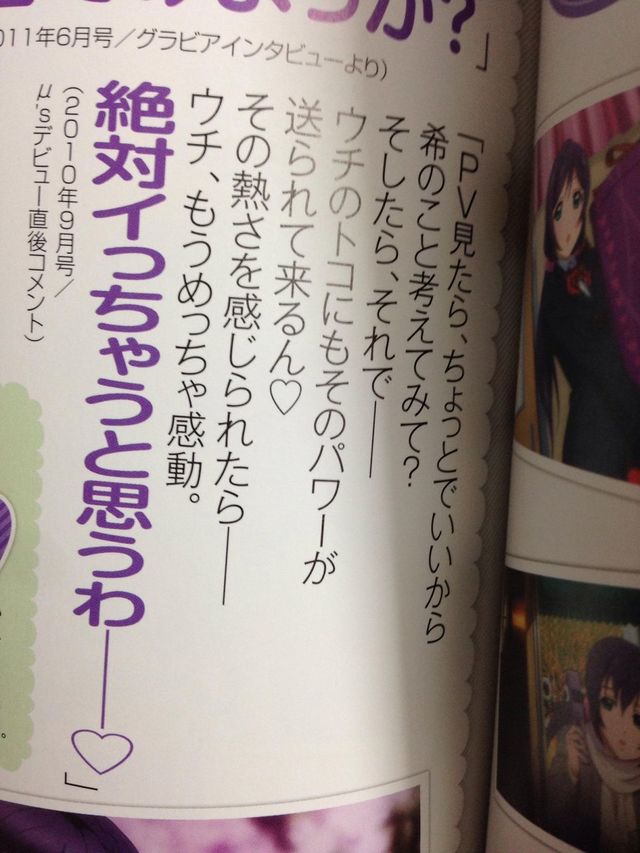 のようか?」
011年6月号／グラビアインタビューより)
「PV見たら、ちょっとでいいから
希のこと考えてみて?
そしたら、それで――
ウチのトコにもそのパワーが
送られて来るん♡
その熱さを感じられたら――
ウチ、もうめっちゃ感動。
絶対イっちゃうと思うわ――♡」
(2010年9月号／
μ'sデビュー直後コメント)